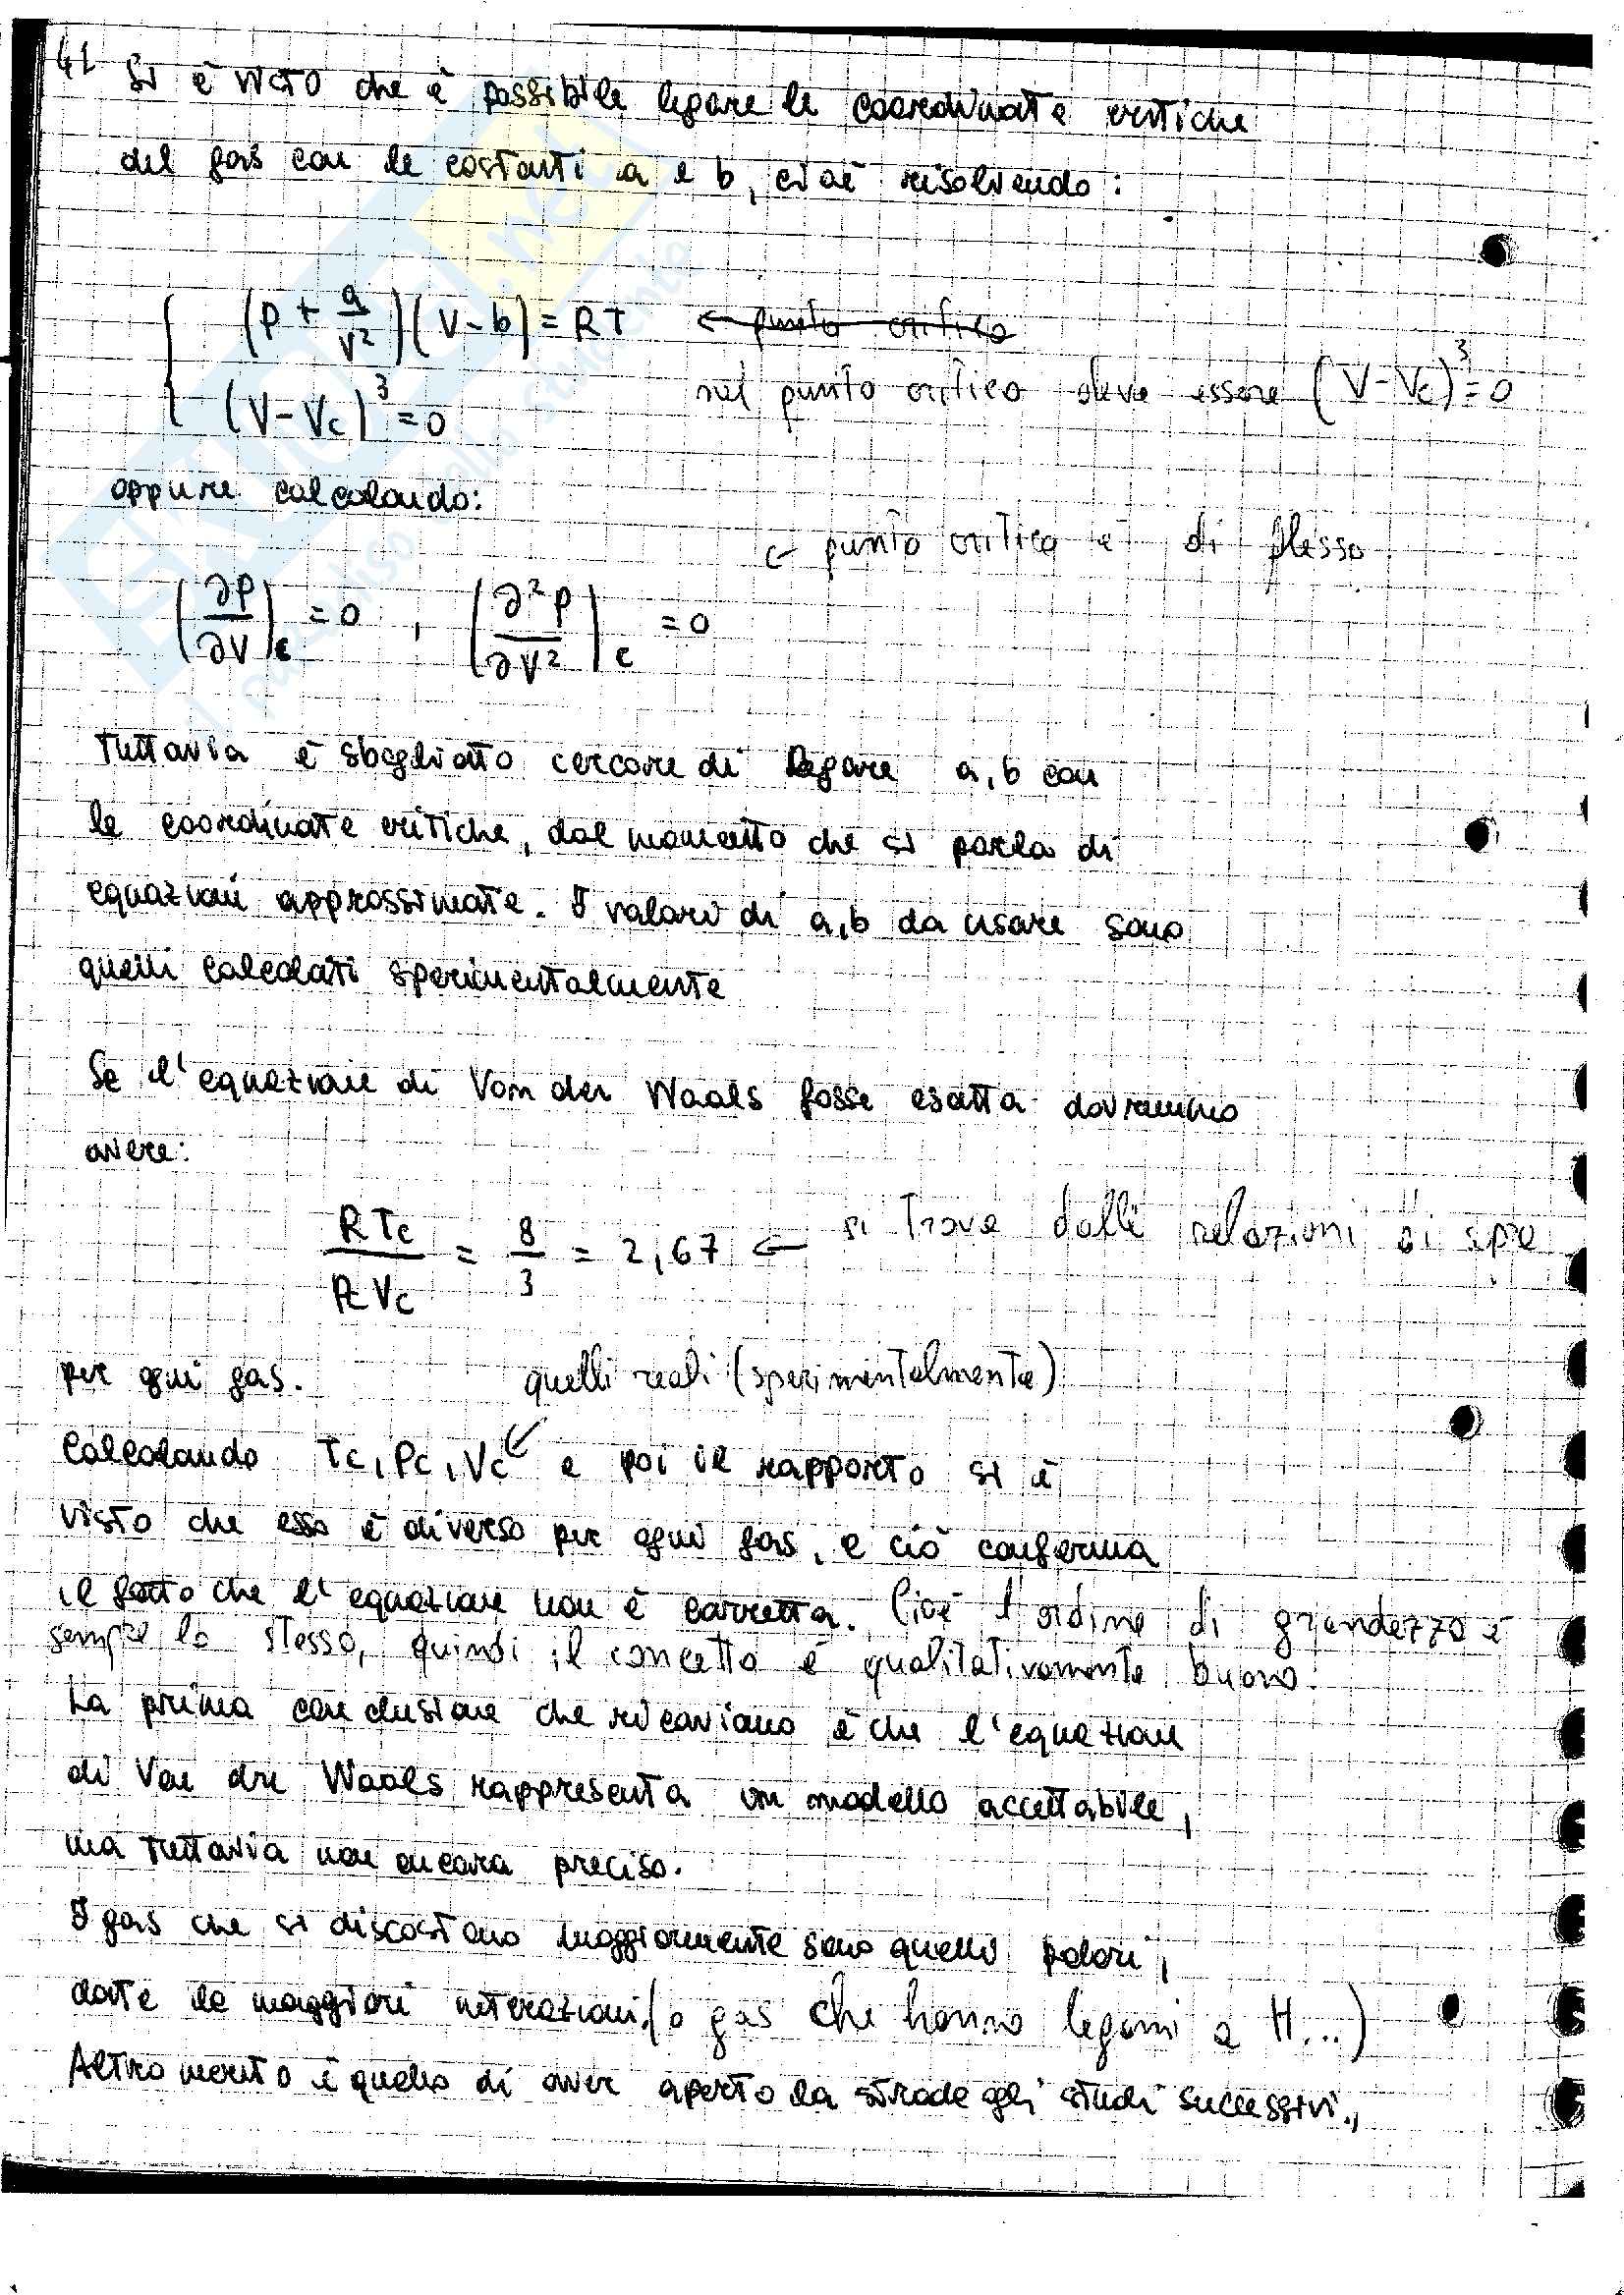 41 Si è visto che è possibile legare le coordinate critiche
del gas con le costanti a e b, cioè risolvendo:
(P + a/V²)(V - b) = RT ← punto critico
(V - Vc)³ = 0 nel punto critico deve essere (V - Vc)³ = 0
oppure calcolando:
← punto critico è di flesso
(∂P/∂V)c = 0 , (∂²P/∂V²)c = 0
Tuttavia è sbagliato cercare di legare a, b con
le coordinate critiche, dal momento che si parla di
equazioni approssimate. I valori di a, b da usare sono
quelli calcolati sperimentalmente
Se l'equazione di Van der Waals fosse esatta dovremmo
avere:
RTc/PcVc = 8/3 = 2,67 ← si trova dalle relazioni di
per ogni gas. quelli reali (sperimentalmente)
Calcolando Tc, Pc, Vc e poi il rapporto si è
visto che esso è diverso per ogni gas, e ciò conferma
il fatto che l'equazione non è corretta. Cioè l'ordine di grandezza è
sempre lo stesso, quindi il concetto è qualitativamente buono.
La prima conclusione che ricaviamo è che l'equazione
di Van der Waals rappresenta un modello accettabile,
ma tuttavia non ancora preciso.
I gas che si discostano maggiormente sono quelli polari,
date le maggiori interazioni. (o gas che hanno legami a H...)
Altro merito è quello di aver aperto la strada agli studi successivi.,